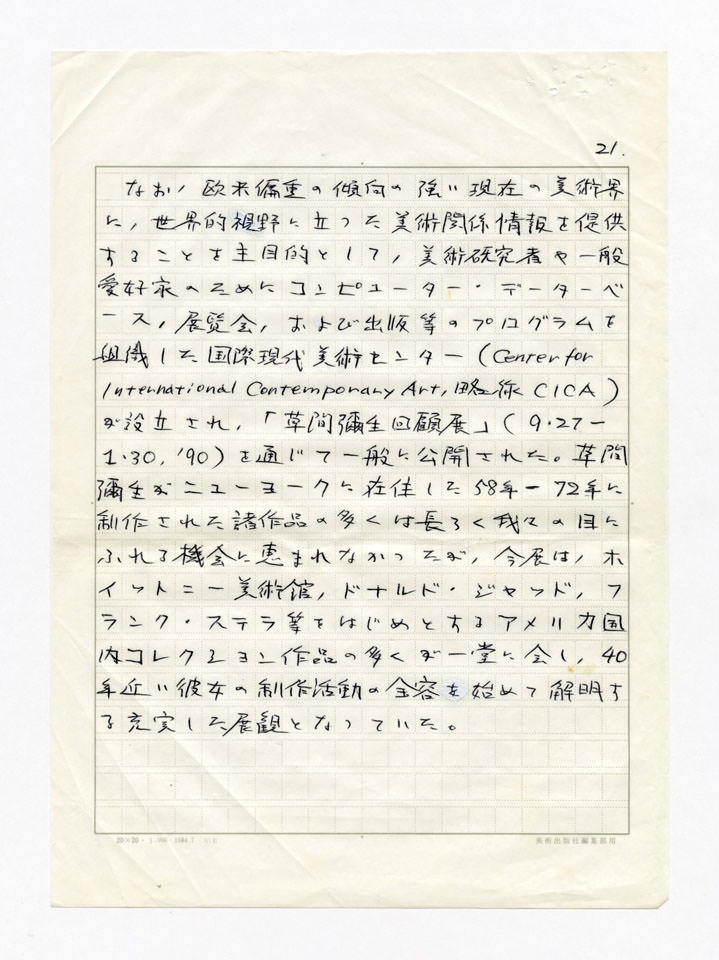 21.
なお, 欧米偏重の傾向の強い現在の美術界
に, 世界的視野に立った美術関係情報を提供
することを主目的として, 美術研究者や一般
愛好家のためにコンピューター・データーベ
ース, 展覧会, および出版等のプログラムを
組織した国際現代美術センター(Center for
International Contemporary Art, 略称 CICA)
が設立され, 「草間彌生回顧展」(9・27−
1・30, '90)を通じて一般に公開された。草間
彌生がニューヨークに在住した58年−72年に
制作された諸作品の多くは長らく我々の目に
ふれる機会に恵まれなかったが, 今展は, ホ
イットニー美術館, ドナルド・ジャッド, フ
ランク・ステラ等をはじめとするアメリカ国
内コレクション作品の多くが一堂に会し, 40
年近い彼女の制作活動の全容を始めて解明す
る充実した展観となっていた。
20×20
美術出版社編集部用